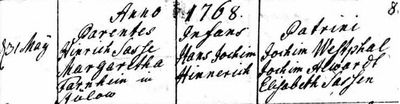 Anno 1768. 8.
Parentes Infans Patrini
31 May Hinrich Sasse Hans Jochim Jochim Westphal
Margaretha Hinnerich Jochim Alwardt
Farnheim in Elisabeth Sassen
Sulow